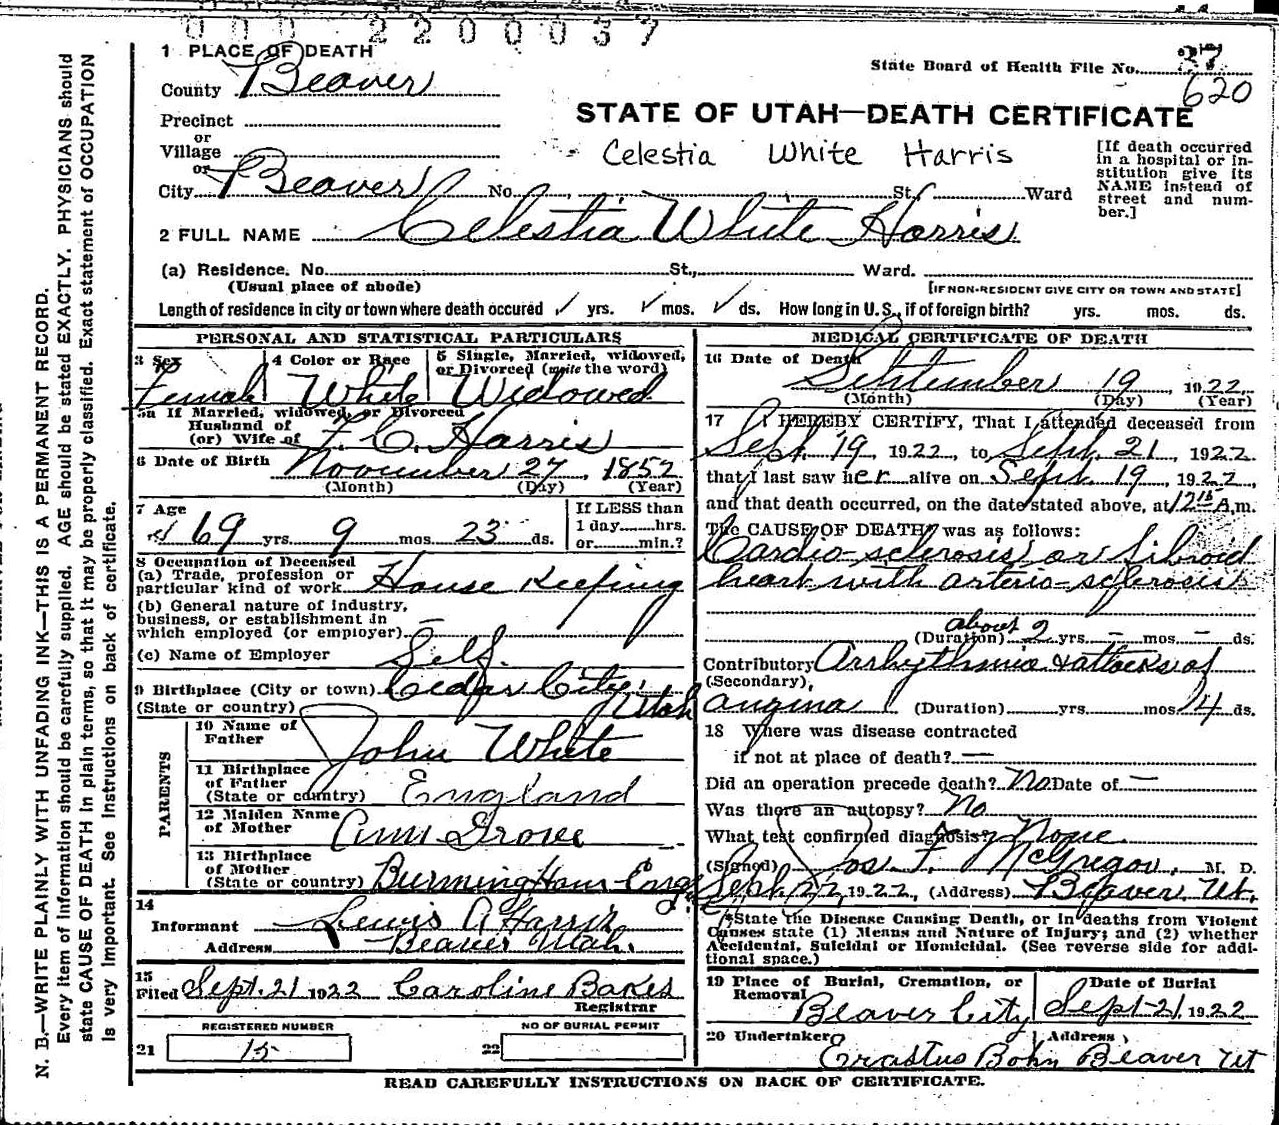 0 0 0 2 2 0 0 0 3 7
1 PLACE OF DEATH
County Beaver
State Board of Health File No. 37
620
STATE OF UTAH—DEATH CERTIFICATE
Precinct
or
Village
or
City Beaver No. , St., Ward
Celestia White Harris
[If death occurred
in a hospital or in-
stitution give its
NAME instead of
street and num-
ber.]
2 FULL NAME Celestia White Harris
(a) Residence. No. St., Ward.
(Usual place of abode)
[IF NON-RESIDENT GIVE CITY OR TOWN AND STATE]
Length of residence in city or town where death occured ✓ yrs. ✓ mos. ✓ ds. How long in U.S., if of foreign birth? yrs. mos. ds.
PERSONAL AND STATISTICAL PARTICULARS
3 Sex
Female
4 Color or Race
White
5 Single, Married, widowed,
or Divorced (write the word)
Widowed
5a If Married, widowed, or Divorced
Husband of
(or) Wife of F. C. Harris
6 Date of Birth November 27, 1852
(Month) (Day) (Year)
7 Age
69 yrs. 9 mos. 23 ds.
If LESS than
1 day hrs.
or min.?
8 Occupation of Deceased
(a) Trade, profession or
particular kind of work House Keeping
(b) General nature of industry,
business, or establishment in
which employed (or employer) —
(c) Name of Employer Self.
9 Birthplace (City or town) Cedar City,
(State or country) Utah
PARENTS
10 Name of
Father John White
11 Birthplace
of Father
(State or country) England
12 Maiden Name
of Mother Ann Grove
13 Birthplace
of Mother
(State or country) Burmingham Eng
14
Informant Lewis A Harris
Address Beaver Utah.
15
Filed Sept. 21 1922 Caroline Bakes
Registrar
REGISTERED NUMBER
21 15
NO OF BURIAL PERMIT
22
MEDICAL CERTIFICATE OF DEATH
16 Date of Death
September 19 1922
(Month) (Day) (Year)
17 I HEREBY CERTIFY, That I attended deceased from
Sept. 19, 1922, to Sept. 21, 1922
that I last saw her alive on Sept 19, 1922,
and that death occurred, on the date stated above, at 12 A.m.
The CAUSE OF DEATH* was as follows:
Cardio-sclerosis or fibroid
heart with arterio-sclerosis
(Duration) about 2 yrs. — mos. — ds.
Contributory Arrhythmia & attacks of
(Secondary),
angina (Duration) yrs. mos 14 ds.
18 Where was disease contracted
if not at place of death? —
Did an operation precede death? No Date of —
Was there an autopsy? No
What test confirmed diagnosis? None
(Signed) Jos. F. McGregor, M. D.
Sept. 22, 1922, (Address) Beaver Ut.
*State the Disease Causing Death, or in deaths from Violent
Causes state (1) Means and Nature of Injury; and (2) whether
Accidental, Suicidal or Homicidal. (See reverse side for addi-
tional space.)
19 Place of Burial, Cremation, or
Removal
Beaver City
Date of Burial
Sept-21 1922
20 Undertaker
Erastus Bohn
Address
Beaver Ut
READ CAREFULLY INSTRUCTIONS ON BACK OF CERTIFICATE.
N. B.—WRITE PLAINLY WITH UNFADING INK—THIS IS A PERMANENT RECORD.
Every item of information should be carefully supplied. AGE should be stated EXACTLY. PHYSICIANS should
state CAUSE OF DEATH in plain terms, so that it may be properly classified. Exact statement of OCCUPATION
is very important. See instructions on back of certificate.